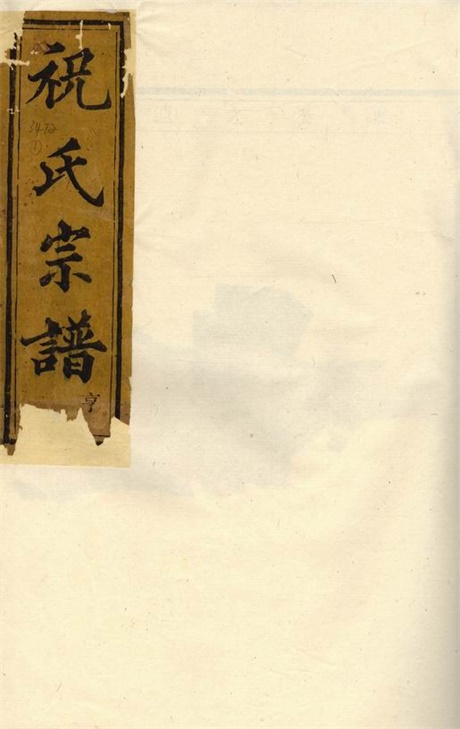 祝氏宗譜
亨